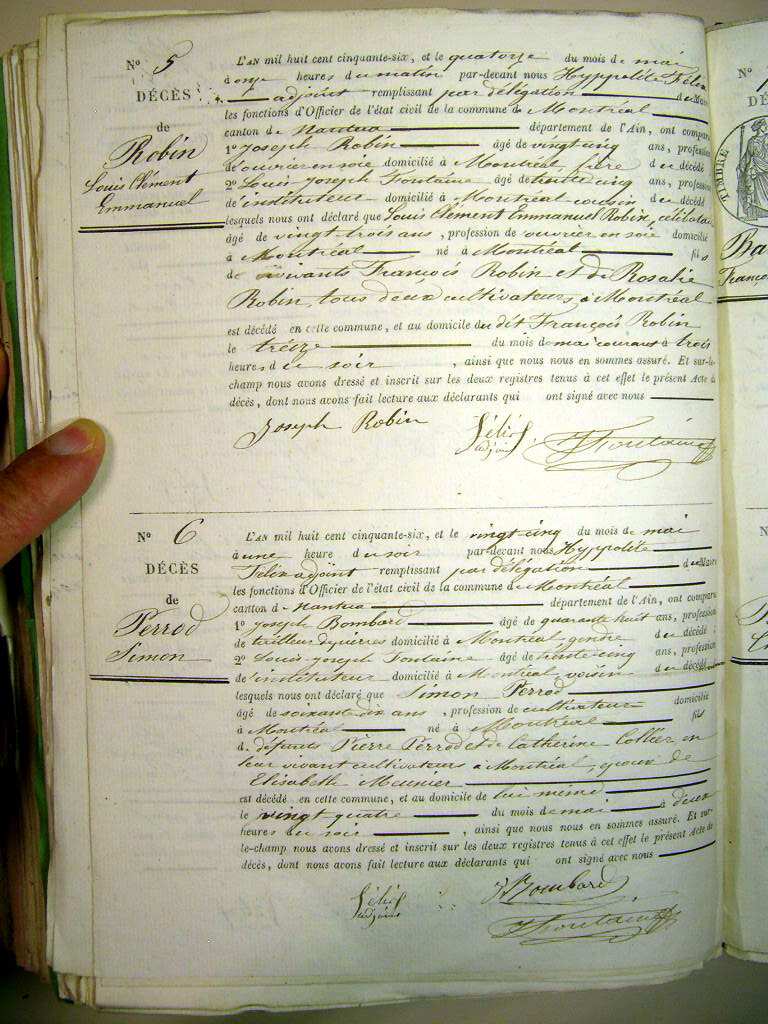 N° 5
DÉCÈS
de
Robin
Louis Clément
Emmanuel
L'AN mil huit cent cinquante-six, et le quatorze du mois de mai
à onze heures du matin par-devant nous Hyppolite Félix
adjoint remplissant par délégation du Maire
les fonctions d'Officier de l'état civil de la commune de Montréal
canton de Nantua département de l'Ain, ont comparu
1° Joseph Robin âgé de vingt cinq ans, profession
de ouvrier en soie domicilié à Montréal frère du décédé
2° Louis Joseph Fontaine âgé de trente cinq ans, profession
de instituteur domicilié à Montréal cousin du décédé
lesquels nous ont déclaré que Louis Clément Emmanuel Robin, célibataire
âgé de vingt trois ans, profession de ouvrier en soie domicilié
à Montréal né à Montréal fils
de vivants François Robin et de Rosalie
Robin, tous deux cultivateurs à Montréal
est décédé en cette commune, et au domicile du dit François Robin
le treize du mois de mai courant à trois
heures du soir, ainsi que nous nous en sommes assuré. Et sur-le-
champ nous avons dressé et inscrit sur les deux registres tenus à cet effet le présent Acte de
décès, dont nous avons fait lecture aux déclarants qui ont signé avec nous
Joseph Robin Félix adjoint Fontaine
N° 6
DÉCÈS
de
Perrod
Simon
L'AN mil huit cent cinquante-six, et le vingt-cinq du mois de mai
à une heure du soir par-devant nous Hyppolite
Félix adjoint remplissant par délégation du Maire
les fonctions d'Officier de l'état civil de la commune de Montréal
canton de Nantua département de l'Ain, ont comparu
1° Joseph Bombard âgé de quarante huit ans, profession
de tailleur de pierres domicilié à Montréal gendre du décédé
2° Louis Joseph Fontaine âgé de trente cinq ans, profession
de instituteur domicilié à Montréal voisin du décédé
lesquels nous ont déclaré que Simon Perrod
âgé de soixante dix ans, profession de cultivateur domicilié
à Montréal né à Montréal fils
de défunts Pierre Perrod et de Catherine Collier en
leur vivant cultivateurs à Montréal, époux de
Elisabeth Meunier
est décédé en cette commune, et au domicile de lui même
le vingt quatre du mois de mai à deux
heures du soir, ainsi que nous nous en sommes assuré. Et sur-
le-champ nous avons dressé et inscrit sur les deux registres tenus à cet effet le présent Acte de
décès, dont nous avons fait lecture aux déclarants qui ont signé avec nous
Félix adjoint Bombard
Fontaine
N°
TIMBRE